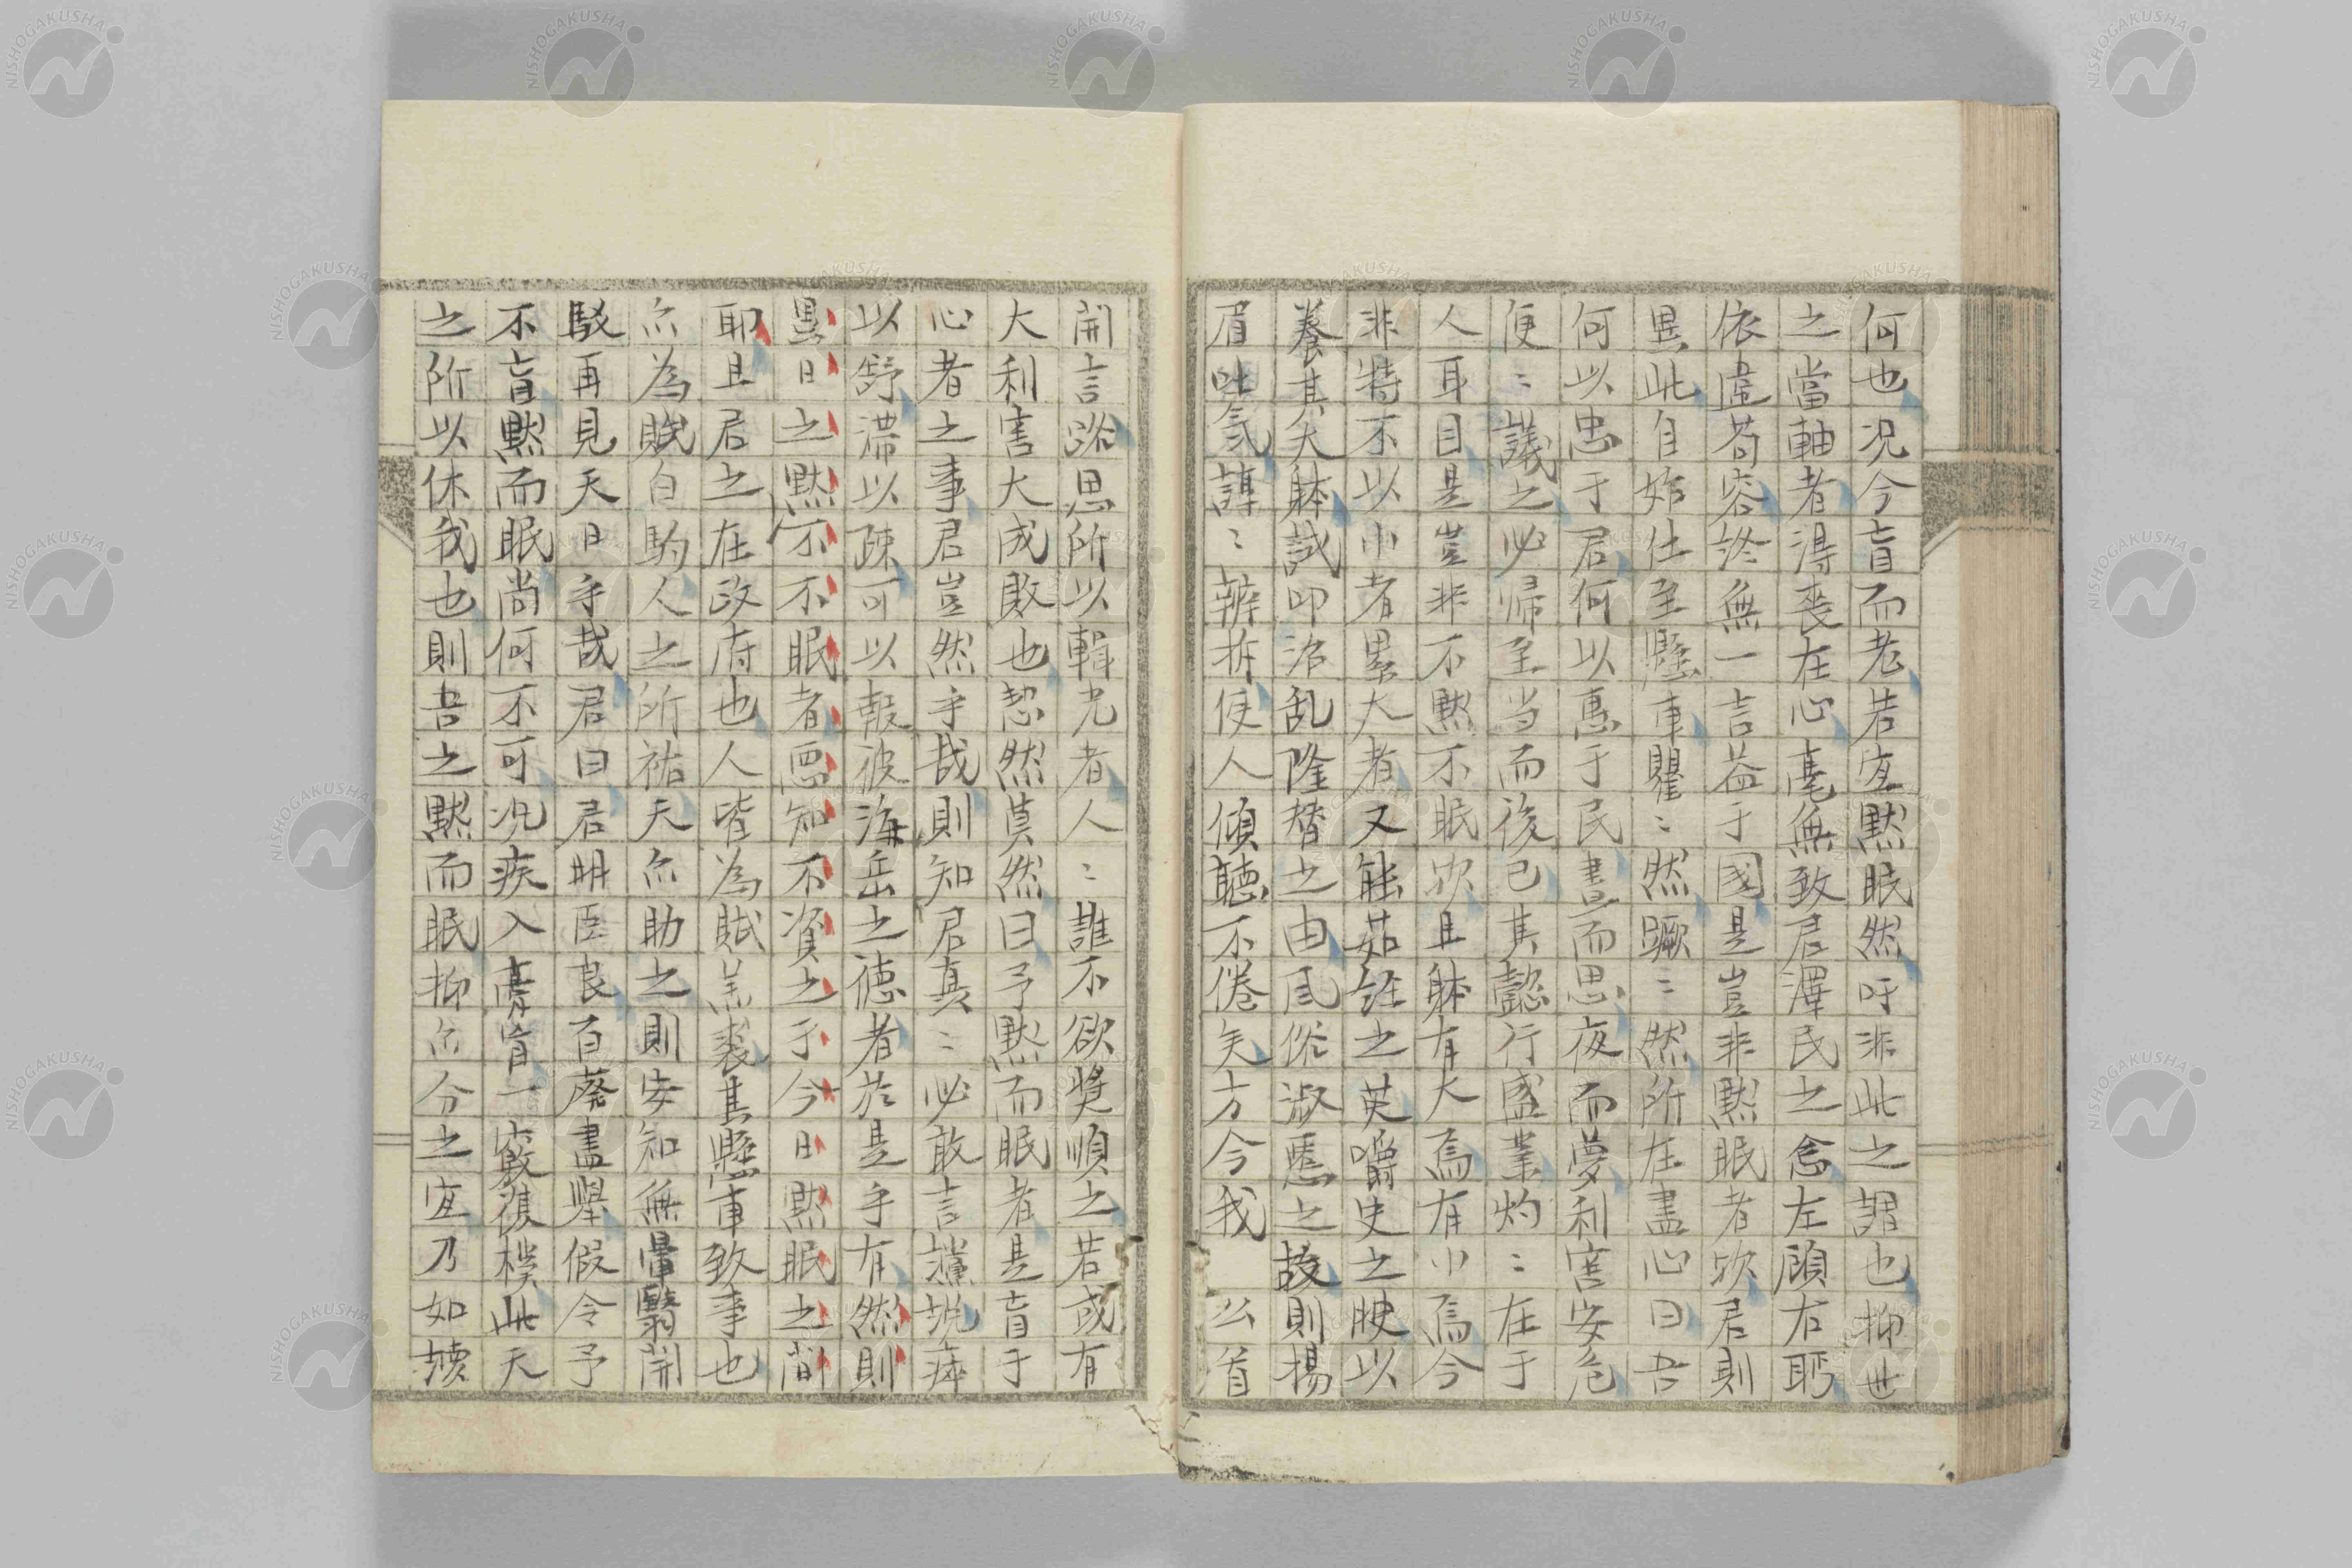 何也況今盲而老若宜黙眠然吁非此之謂也抑世
之當軸者得喪在心毫無致君澤民之念左顧右眄
依違苟容終無一言益于國是豈非黙眠者歟君則
異此自始仕至懸車瞿〻然蹶〻然所在盡心曰吾
何以忠于君何以惠于民晝而思夜而夢利害安危
便〻議之必歸至当而後已其懿行盛業灼〻在于
人耳目是豈非不黙不眠歟且躰有大焉有小焉今
非特不以小者累大者又能茹經之英嚼史之腴以
養其大躰試叩治乱隆替之由風俗淑慝之故則揚
眉吐氣諄〻辨析使人傾聽不倦矣方今我 公道
開言路思所以輯光者人〻誰不欲奬順之若或有
大利害大成敗也恝然莫然曰予黙而眠者是盲于
心者之事君豈然乎哉則知君真〻必敢言讜説庫
以舒滯以疎可以報彼海岳之德者於是乎有然則
異日之黙不不眠者悪知不資之于今日黙眠之間
耶且君之在政府也人皆為賦羔裘其懸車致事也
亦為賦白駒人之所祐天亦助之則安知無暈翳開
駁再見天日乎哉君曰君明臣良百廢盡擧假令予
不盲黙而眠尚何不可況疾入膏肓一竅復樸此天
之所以休我也則吾之黙而眠抑亦分之宜乃如